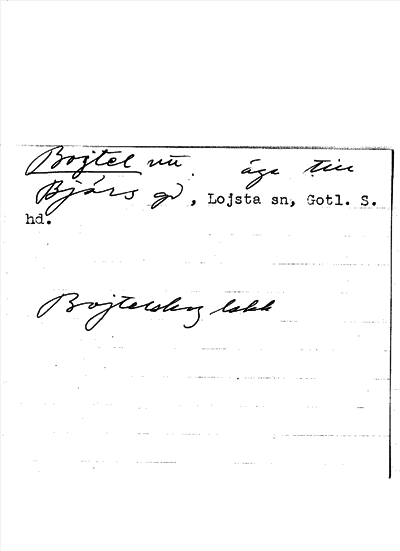 Bojtel äga till
Bjärs gd, Lojsta sn, Gotl. S.
hd.
Bojtelskog